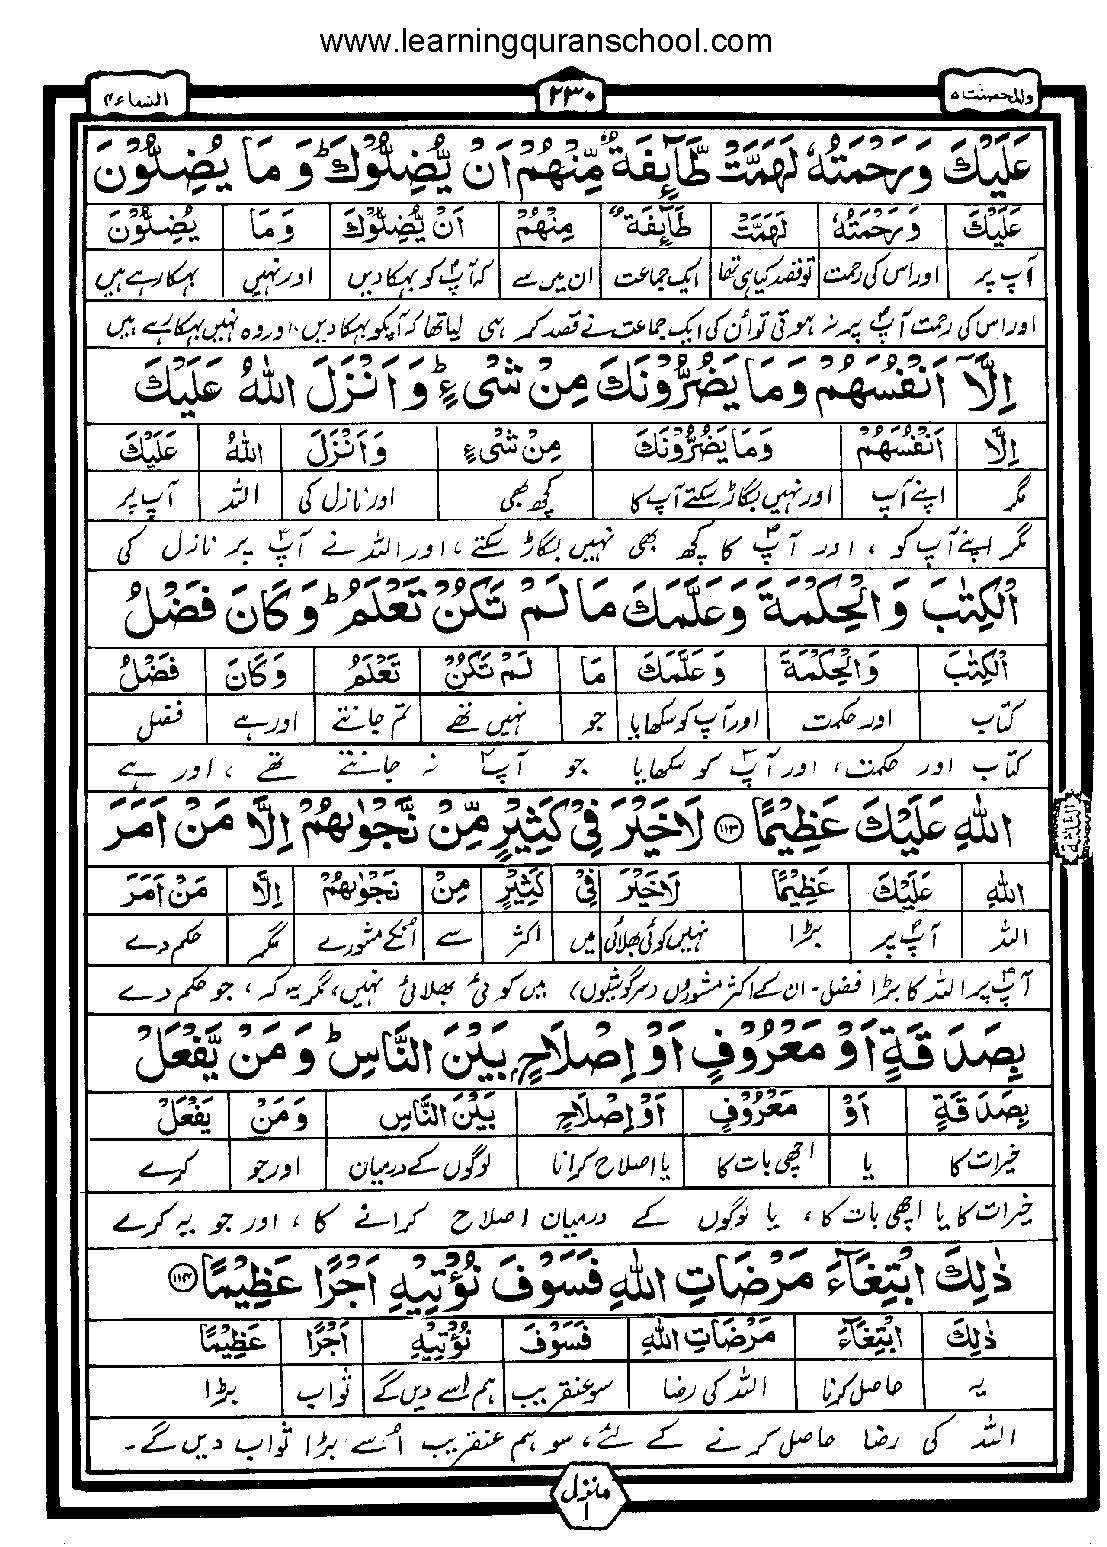 www.learningquranschool.com
النساء ۴
۲۳۰
والمحصنت ۵
عَلَيْكَ وَرَحْمَتُهٗ لَهَمَّتْ طَّآئِفَةٌ مِّنْهُمْ اَنْ يُّضِلُّوْكَ ؕ وَمَا يُضِلُّوْنَ
عَلَيْكَ وَرَحْمَتُهٗ لَهَمَّتْ طَّآئِفَةٌ مِنْهُمْ اَنْ يُّضِلُّوْكَ وَمَا يُضِلُّوْنَ
آپ پر اور اس کی رحمت تو قصد کیا ہی تھا ایک جماعت ان میں سے کہ آپ کو بہکا دیں اور نہیں بہکا رہے ہیں
اور اس کی رحمت آپ پر نہ ہوتی تو اُن کی ایک جماعت نے قصد کر ہی لیا تھا کہ آپکو بہکا دیں، اور وہ نہیں بہکا رہے ہیں
اِلَّآ اَنْفُسَهُمْ وَمَا يَضُرُّوْنَكَ مِنْ شَىْءٍ ؕ وَاَنْزَلَ اللّٰهُ عَلَيْكَ
اِلَّا اَنْفُسَهُمْ وَمَا يَضُرُّوْنَكَ مِنْ شَىْءٍ وَاَنْزَلَ اللّٰهُ عَلَيْكَ
مگر اپنے آپ اور نہیں بگاڑ سکتے آپ کا کچھ بھی اور نازل کی اللہ آپ پر
مگر اپنے آپ کو ، اور آپ کا کچھ بھی نہیں بگاڑ سکتے ، اور اللہ نے آپ پر نازل کی
الْكِتٰبَ وَالْحِكْمَةَ وَعَلَّمَكَ مَا لَمْ تَكُنْ تَعْلَمُ ؕ وَكَانَ فَضْلُ
الْكِتٰبَ وَالْحِكْمَةَ وَعَلَّمَكَ مَا لَمْ تَكُنْ تَعْلَمُ وَكَانَ فَضْلُ
کتاب اور حکمت اور آپ کو سکھایا جو نہیں تھے تم جانتے اور ہے فضل
کتاب اور حکمت، اور آپ کو سکھایا جو آپ نہ جانتے تھے ، اور ہے
اللّٰهِ عَلَيْكَ عَظِيْمًا ۝۱۱۳ لَاخَيْرَ فِىْ كَثِيْرٍ مِّنْ نَّجْوٰىهُمْ اِلَّا مَنْ اَمَرَ
اللّٰهِ عَلَيْكَ عَظِيْمًا لَاخَيْرَ فِىْ كَثِيْرٍ مِنْ نَجْوٰىهُمْ اِلَّا مَنْ اَمَرَ
اللہ آپ پر بڑا نہیں کوئی بھلائی میں اکثر سے انکے مشورے مگر حکم دے
آپ پر اللہ کا بڑا فضل ۔ ان کے اکثر مشوروں (سرگوشیوں) میں کوئی بھلائی نہیں، مگر یہ کہ ، جو حکم دے
بِصَدَقَةٍ اَوْ مَعْرُوْفٍ اَوْ اِصْلَاحٍۭ بَيْنَ النَّاسِ ؕ وَمَنْ يَّفْعَلْ
بِصَدَقَةٍ اَوْ مَعْرُوْفٍ اَوْ اِصْلَاحٍ بَيْنَ النَّاسِ وَمَنْ يَفْعَلْ
خیرات کا یا اچھی بات کا یا اصلاح کرانا لوگوں کے درمیان اور جو کرے
خیرات کا یا اچھی بات کا ، یا لوگوں کے درمیان اصلاح کرانے کا ، اور جو یہ کرے
ذٰلِكَ ابْتِغَآءَ مَرْضَاتِ اللّٰهِ فَسَوْفَ نُؤْتِيْهِ اَجْرًا عَظِيْمًا ۝۱۱۴
ذٰلِكَ ابْتِغَآءَ مَرْضَاتِ اللّٰهِ فَسَوْفَ نُؤْتِيْهِ اَجْرًا عَظِيْمًا
یہ حاصل کرنا اللہ کی رضا سو عنقریب ہم اسے دیں گے ثواب بڑا
اللہ کی رضا حاصل کرنے کے لئے ، سو ہم عنقریب اُسے بڑا ثواب دیں گے ۔
منزل
۱